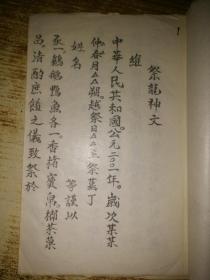 祭龍神文
維
中華人民共和國。公元二〇〇一年。歲次某某
仲春月△△朔。越祭日△△△。祭䔍丁
姓名
等謹以
豕一鷄鵝鴨魚各一。香楮寳帛。櫊茶菓
品。清酌庶饈之儀致祭於